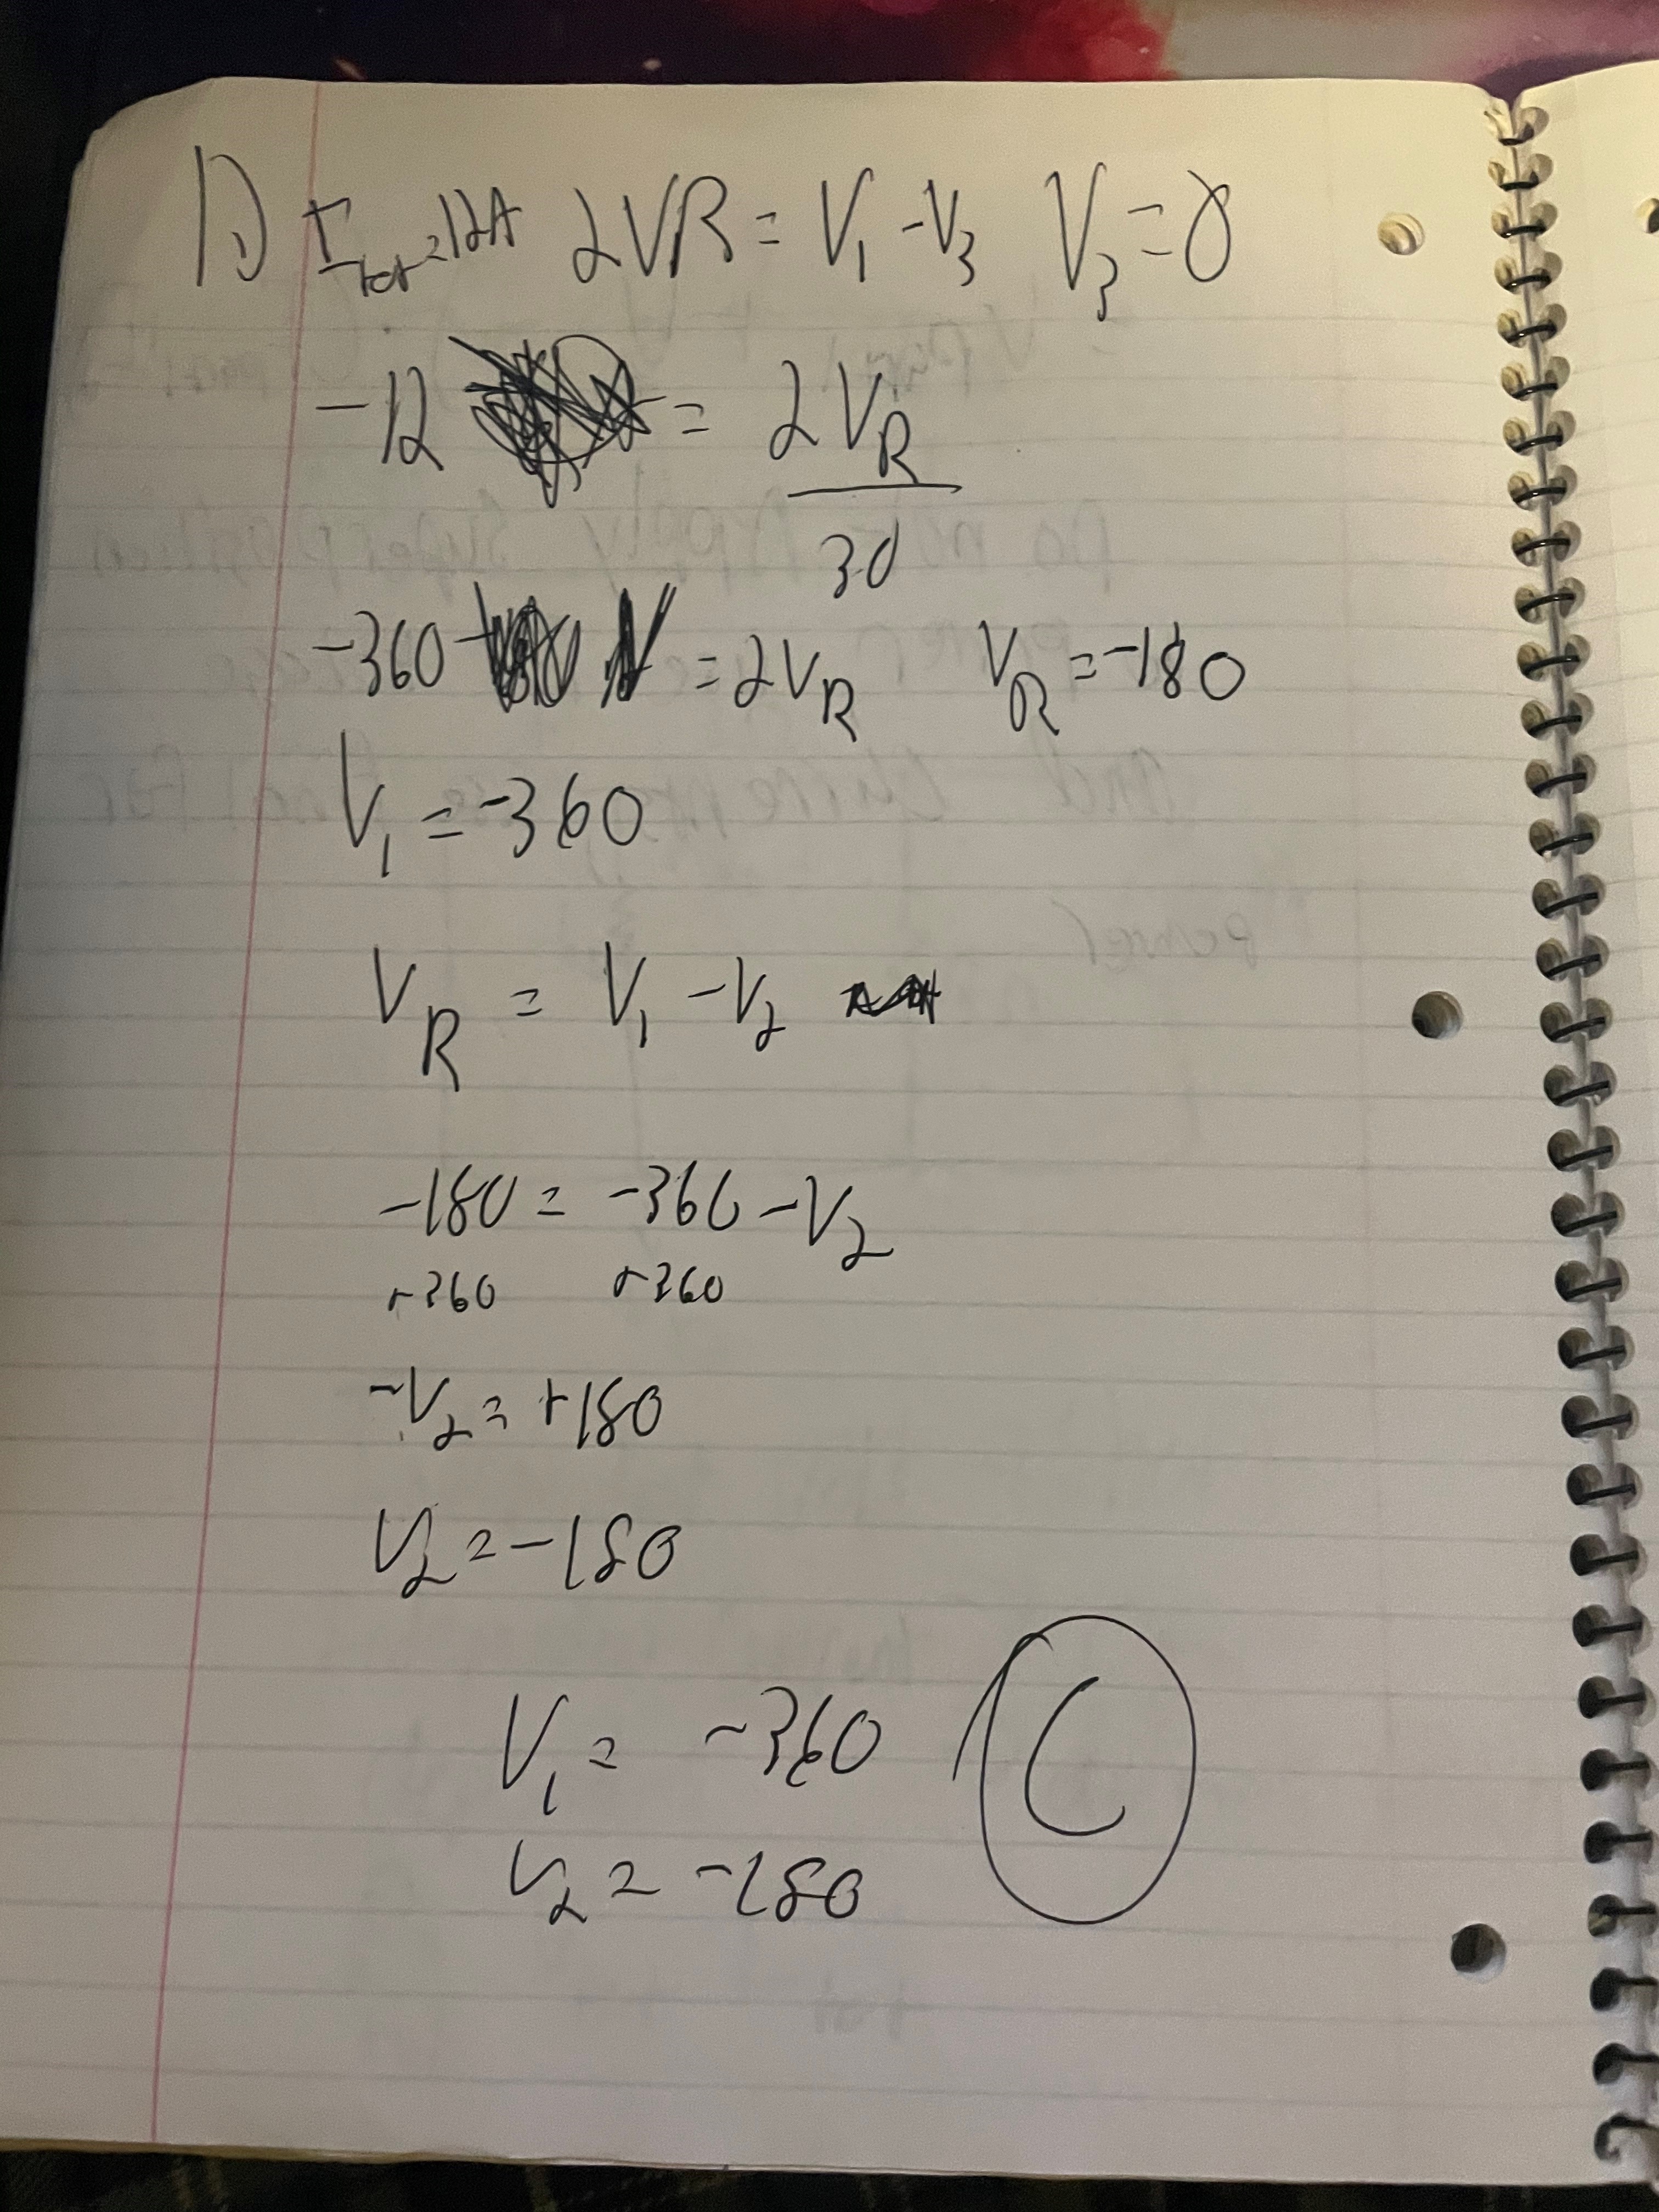 1.) I_tot=12A 2VR = V₁ - V₃ V₃ = 0
-12 = 2V_R
30
-360 = 2V_R V_R = -180
V₁ = -360
V_R = V₁ - V₂
-180 = -360 - V₂
+360 +360
-V₂ = +180
V₂ = -180
V₁ = -360 C
V₂ = -180